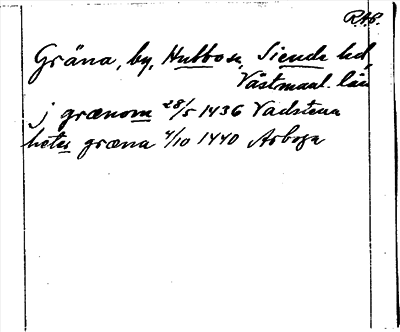 RAP.
Gräna, by, Hubbo sn, Siende hd
Västmanl. län
j grænom 28/5 1436 Vadstena
hetes græna 4/10 1440 Arboga